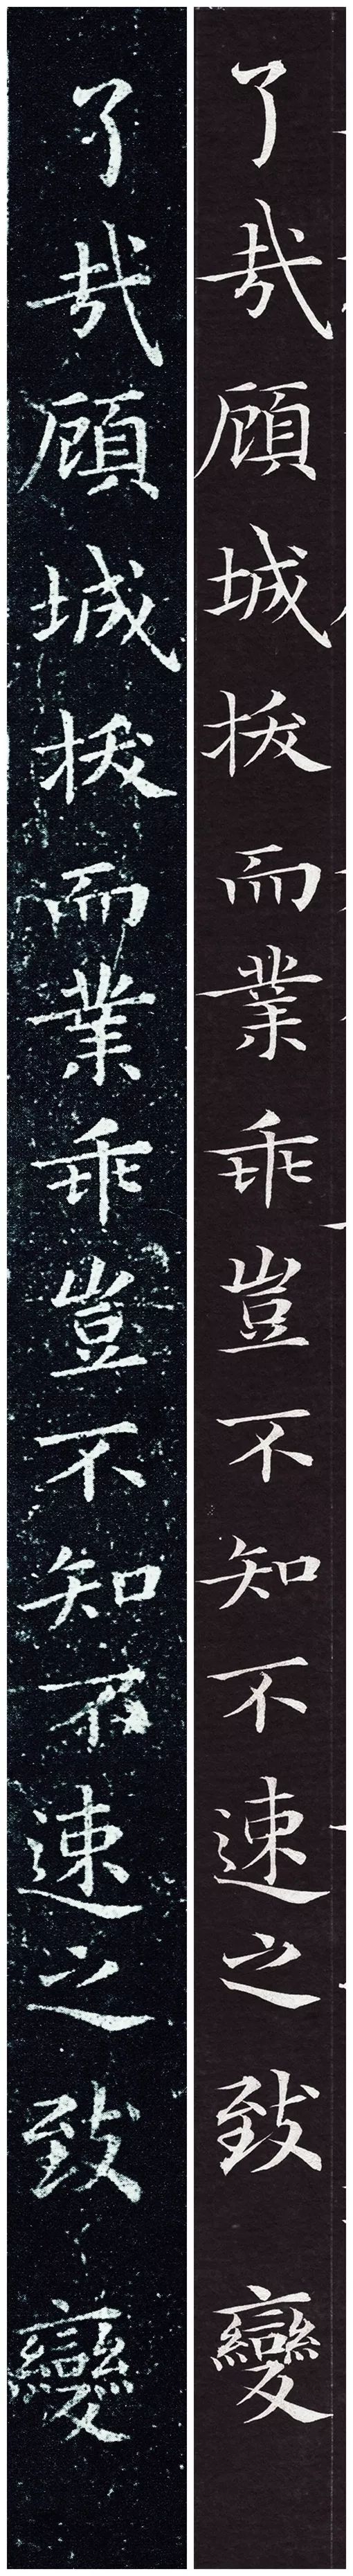 了哉顧城拔而業乖豈不知不速之致變
了哉顧城拔而業乖豈不知不速之致變